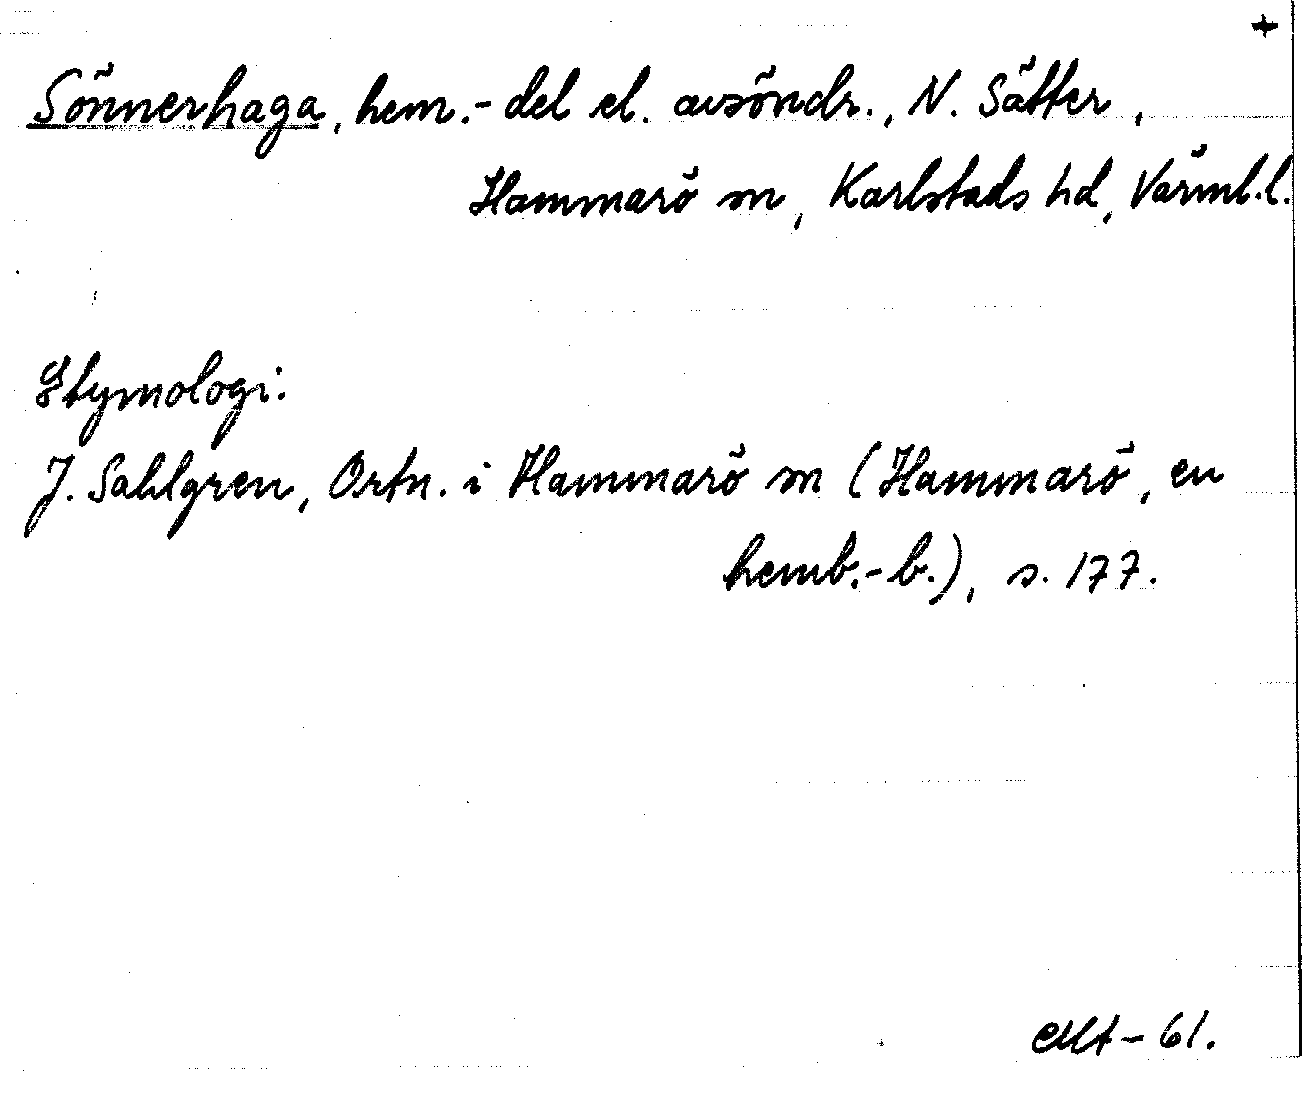 +
Sönnerhaga, hem.-del el. avsöndr., N. Sätter,
Hammarö sn, Karlstads hd, Värml.l.
Etymologi:
J. Sahlgren, Ortn. i Hammarö sn (Hammarö, en
hemb.-b.), s. 177.
-61.